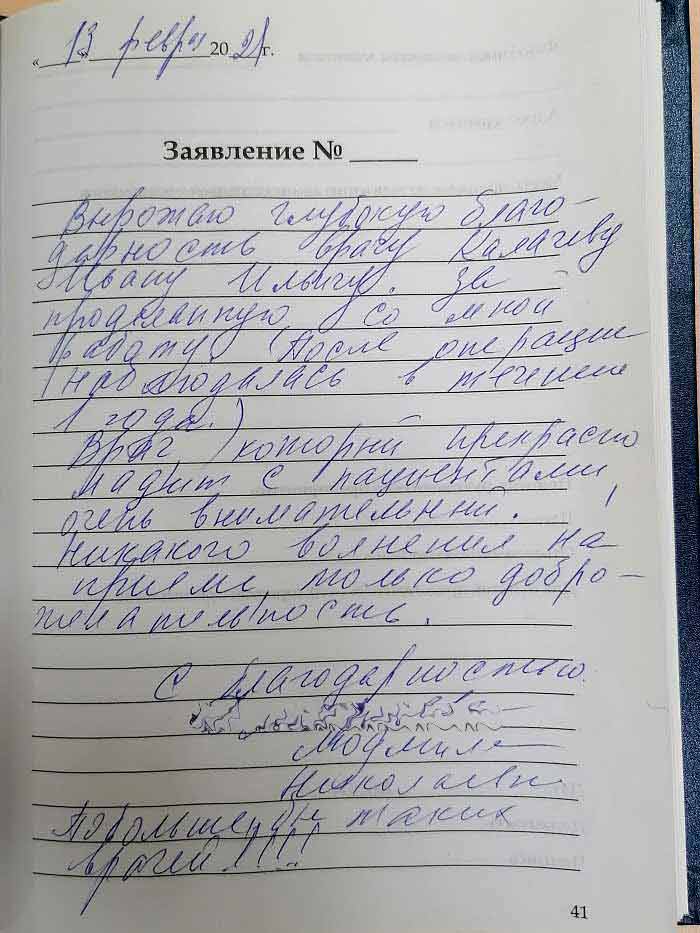 « 13 » февра 2021 г.
Заявление № ____
Вырожаю глубокую благо-
дарность врачу Калачеву
Ивану Ильичу. За
проделанную со мной
работу. (После операции
наблюдалась в течении
1 года.)
Врач, который прекрасно
ладит с пациентами,
очень внимательный.
Никакого волнения на
приёме, только добро-
женательность.
С благодарностью
Людмила
Николаевн
Побольше бы таких
врачей!!!!
41